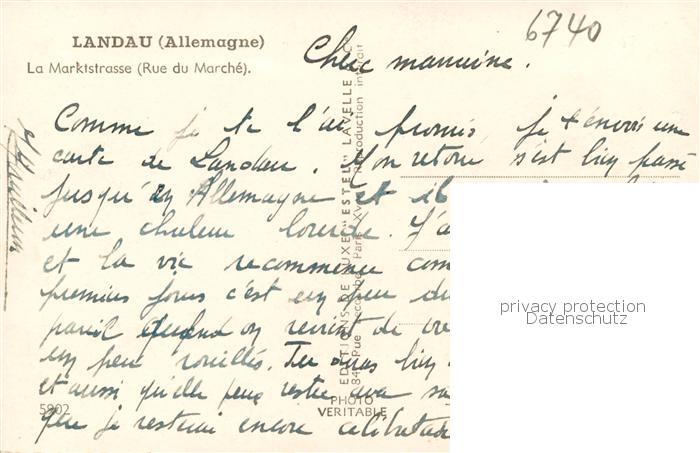 6740
LANDAU (Allemagne)
La Marktstrasse (Rue du Marché).
Chère mamine.
Comme je te l'ai promis, je t'envoie une
carte de Landau. Mon retour s'est bien passé
jusqu'en Allemagne et il
une chaleur lourde. J'a
et la vie recommence com
premiers jours c'est un peu du
pareil quand on revient de
un peu rouillés. Tu diras bien
et aussi qu'elle peut rester avec sa
que je resterai encore célibataire
5902
PHOTO
VERITABLE
EDITIONS DE LUXE "ESTEL" LAVELLE
84, Rue Paris XV Reproduction interdit
privacy protection
Datenschutz